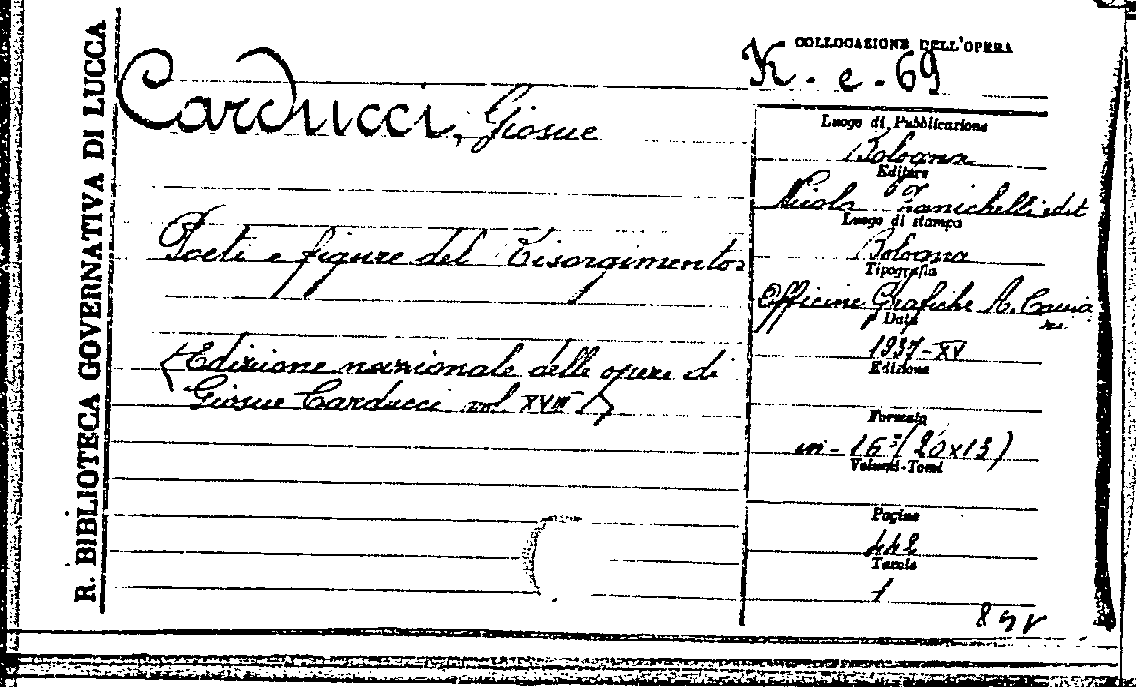 R. BIBLIOTECA GOVERNATIVA DI LUCCA
COLLOCAZIONE DELL'OPERA
K - e - 69
Carducci, Giosue
Poeti e figure del Risorgimento
(Edizione nazionale delle opere di
Giosue Carducci vol XVIII)
Luogo di Pubblicazione
Bologna
Editore
Nicola Zanichelli edit
Luogo di stampa
Bologna
Tipografia
Officine Grafiche A. Cacciari
Data
1937-XV
Edizione
Formato
in-16° (20x13)
Volumi-Tomi
Pagine
442
Tavole
1